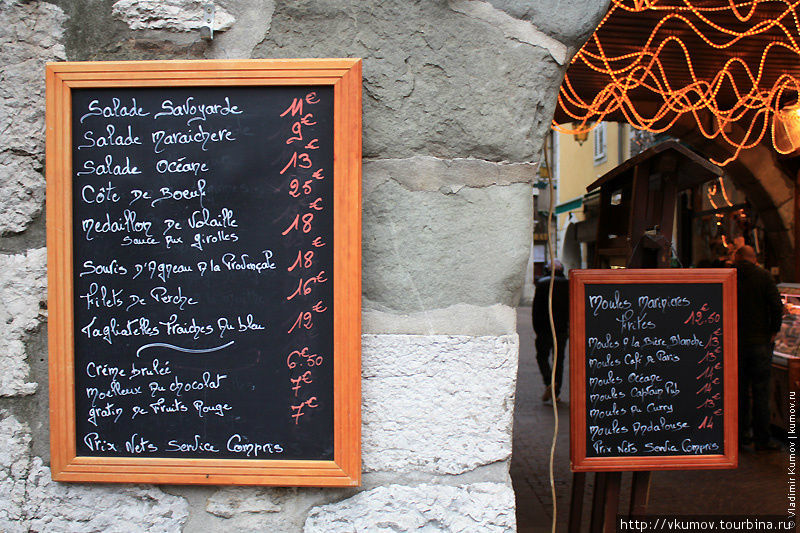 Salade Savoyarde 11€
Salade Maraichere 9€
Salade Océane 13€
Côte De Boeuf 25€
Medaillon De Volaille 18€
Sauce aux girolles
Souris D'Agneau A la Provençale 18€
Filets De Perche 16€
Tagliatelles Fraiches Au bleu 12€
Crème brulée 6€50
Moelleux Au chocolat 7€
gratin De Fruits Rouge 7€
Prix Nets Service Compris
Moules Marinieres
Frites 12€50
Moules A la Bière Blanche 13€
Moules Café De Paris 13€
Moules Océane 14€
Moules Captain Pub
Moules Au Curry 13€
Moules Andalouse 14€
Prix Nets Service Compris
© Vladimir Kumov | kumov.ru
http://vkumov.tourbina.ru